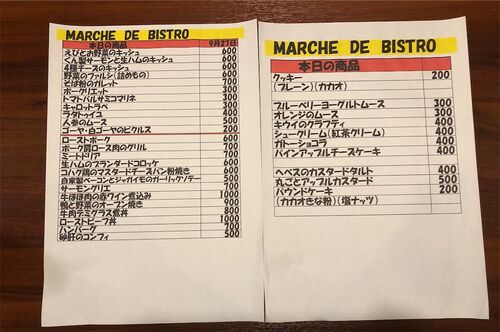 MARCHE DE BISTRO
本日の商品 9月27日
えびとお野菜のキッシュ 600
くん製サーモンと生ハムのキッシュ 600
4種チーズのキッシュ 600
野菜のファルシ(詰めもの) 600
そば粉のガレット 700
ポークリエット 300
トマトバルサミコマリネ 300
キャロットラペ 300
ラタトゥイユ 400
人参のムース 300
ゴーヤ・白ゴーヤのピクルス 200
ローストポーク 600
ポーク肩ロース肉のグリル 700
ミートドリア 700
生ハムのブランダードコロッケ 600
コハク鶏のマスタードチーズパン粉焼き 600
自家製ベーコンとジャガイモのガーリックソテー 600
サーモングリエ 700
牛ほほ肉の赤ワイン煮込み 1000
鴨と野菜のオーブン焼き 900
牛肉デミグラス煮丼 800
ローストビーフ丼 1000
ハンバーグ 700
砂肝のコンフィ 500
MARCHE DE BISTRO
本日の商品
クッキー 200
(プレーン)(カカオ)
ブルーベリーヨーグルトムース 300
オレンジのムース 300
キウイのクラフティ 300
シュークリーム(紅茶クリーム) 400
ガトーショコラ 400
パインアップルチーズケーキ 400
ヘベスのカスタードタルト 400
丸ごとアップルカスタード 500
パウンドケーキ 200
(カカオきな粉)(塩ナッツ)